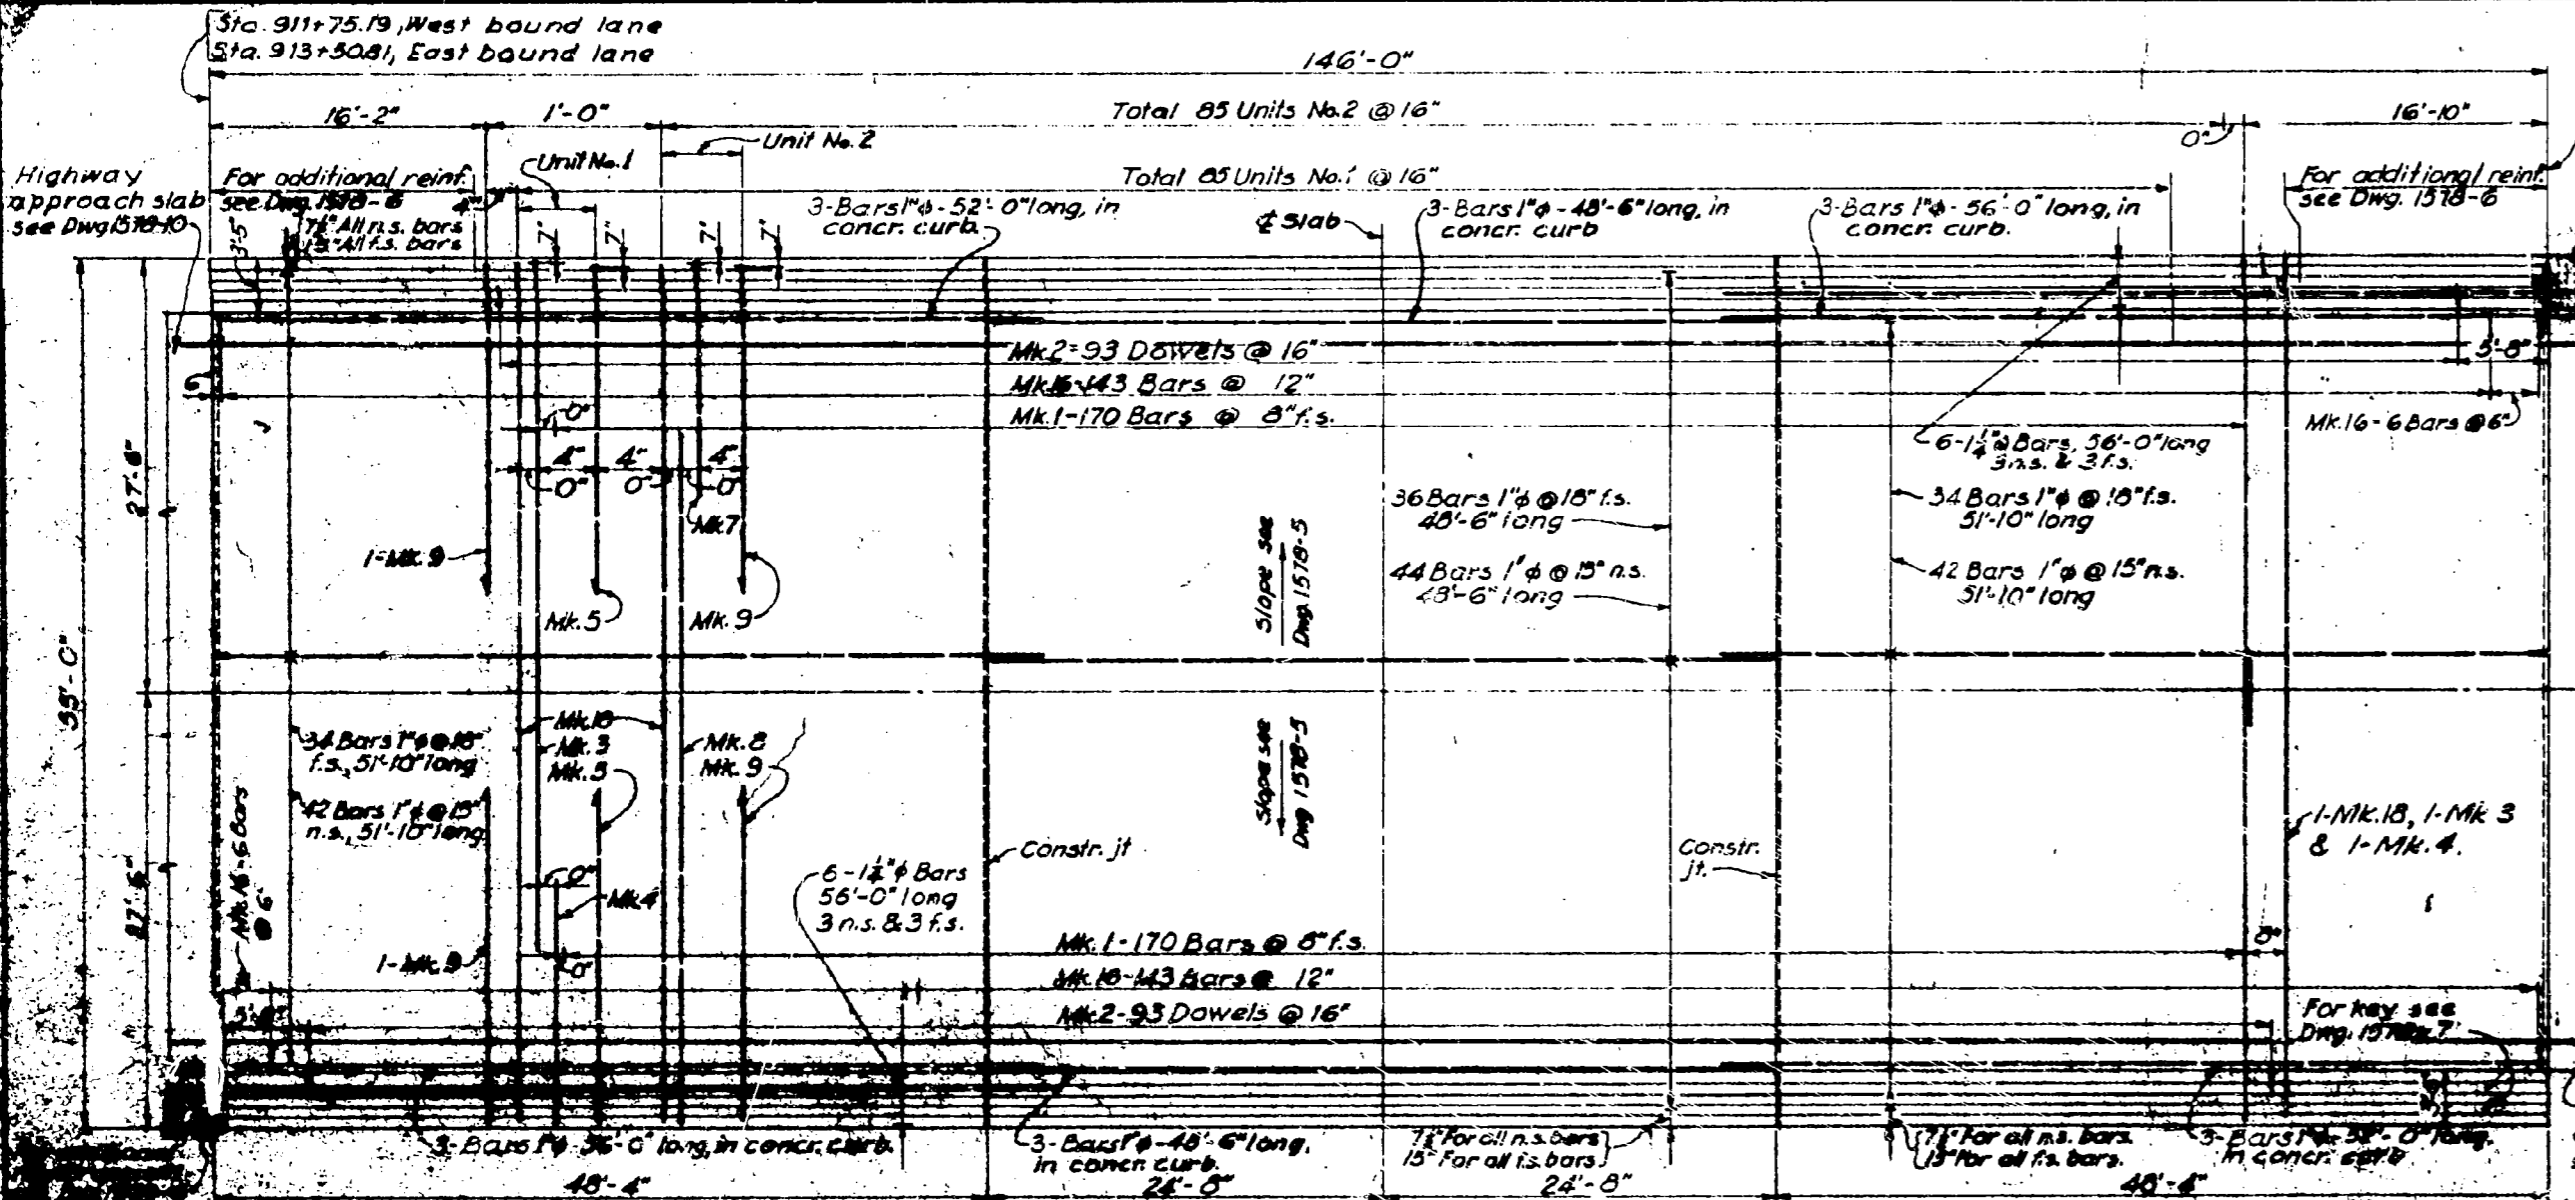 Sta. 911+75.19, West bound lane
Sta. 913+50.81, East bound lane
146'-0"
16'-2"
1'-0"
Total 85 Units No.2 @ 16"
16'-10"
0"
Unit No. 2
Unit No. 1
Total 85 Units No.1 @ 16"
Highway
approach slab
see Dwg 1578-10
For additional reinf.
see Dwg. 1578-6
4"
7½" All n.s. bars
15" All f.s. bars
3'-5"
7"
7"
7"
7"
3-Bars 1"ϕ - 52'-0" long, in
concr. curb.
℄ Slab
3-Bars 1"ϕ - 48'-6" long, in
concr. curb
3-Bars 1"ϕ - 56'-0" long, in
concr. curb.
For additional reinf.
see Dwg. 1578-6
Mk.2-93 Dowels @ 16"
Mk.16-143 Bars @ 12"
Mk.1-170 Bars @ 8" f.s.
5'-8"
Mk.16-6 Bars @ 6"
6"
4"
4"
4"
0"
0"
0"
Mk.7
27'-6"
55'-0"
27'-6"
1-Mk.9
Mk.5
Mk.9
6-1¼"ϕ Bars, 56'-0" long
3 n.s. & 3 f.s.
36 Bars 1"ϕ @ 18" f.s.
48'-6" long
44 Bars 1"ϕ @ 15" n.s.
48'-6" long
34 Bars 1"ϕ @ 18" f.s.
51'-10" long
42 Bars 1"ϕ @ 15" n.s.
51'-10" long
Slope see
Dwg. 1578-5
Slope see
Dwg 1578-5
34 Bars 1"ϕ @ 18"
f.s., 51'-10" long
42 Bars 1"ϕ @ 15"
n.s., 51'-10" long
Mk.18
Mk.3
Mk.5
Mk.8
Mk.9
Mk.4
1-Mk.9
Mk.16-6 Bars
@ 6"
Constr. jt
Constr.
jt.
1-Mk.18, 1-Mk 3
& 1-Mk.4.
6-1¼"ϕ Bars
56'-0" long
3 n.s. & 3 f.s.
Mk.1-170 Bars @ 8" f.s.
Mk.16-143 Bars @ 12"
Mk.2-93 Dowels @ 16"
8"
5'-8"
For key see
Dwg. 1578-7
3-Bars 1"ϕ 56'-0" long, in concr. curb.
3-Bars 1"ϕ - 48'-6" long,
in concr. curb.
7½" For all n.s. bars
15" For all f.s. bars
7½" For all n.s. bars.
15" for all f.s. bars.
3-Bars 1"ϕ - 52'-0" long,
in concr. curb
48'-4"
24'-8"
24'-8"
48'-4"